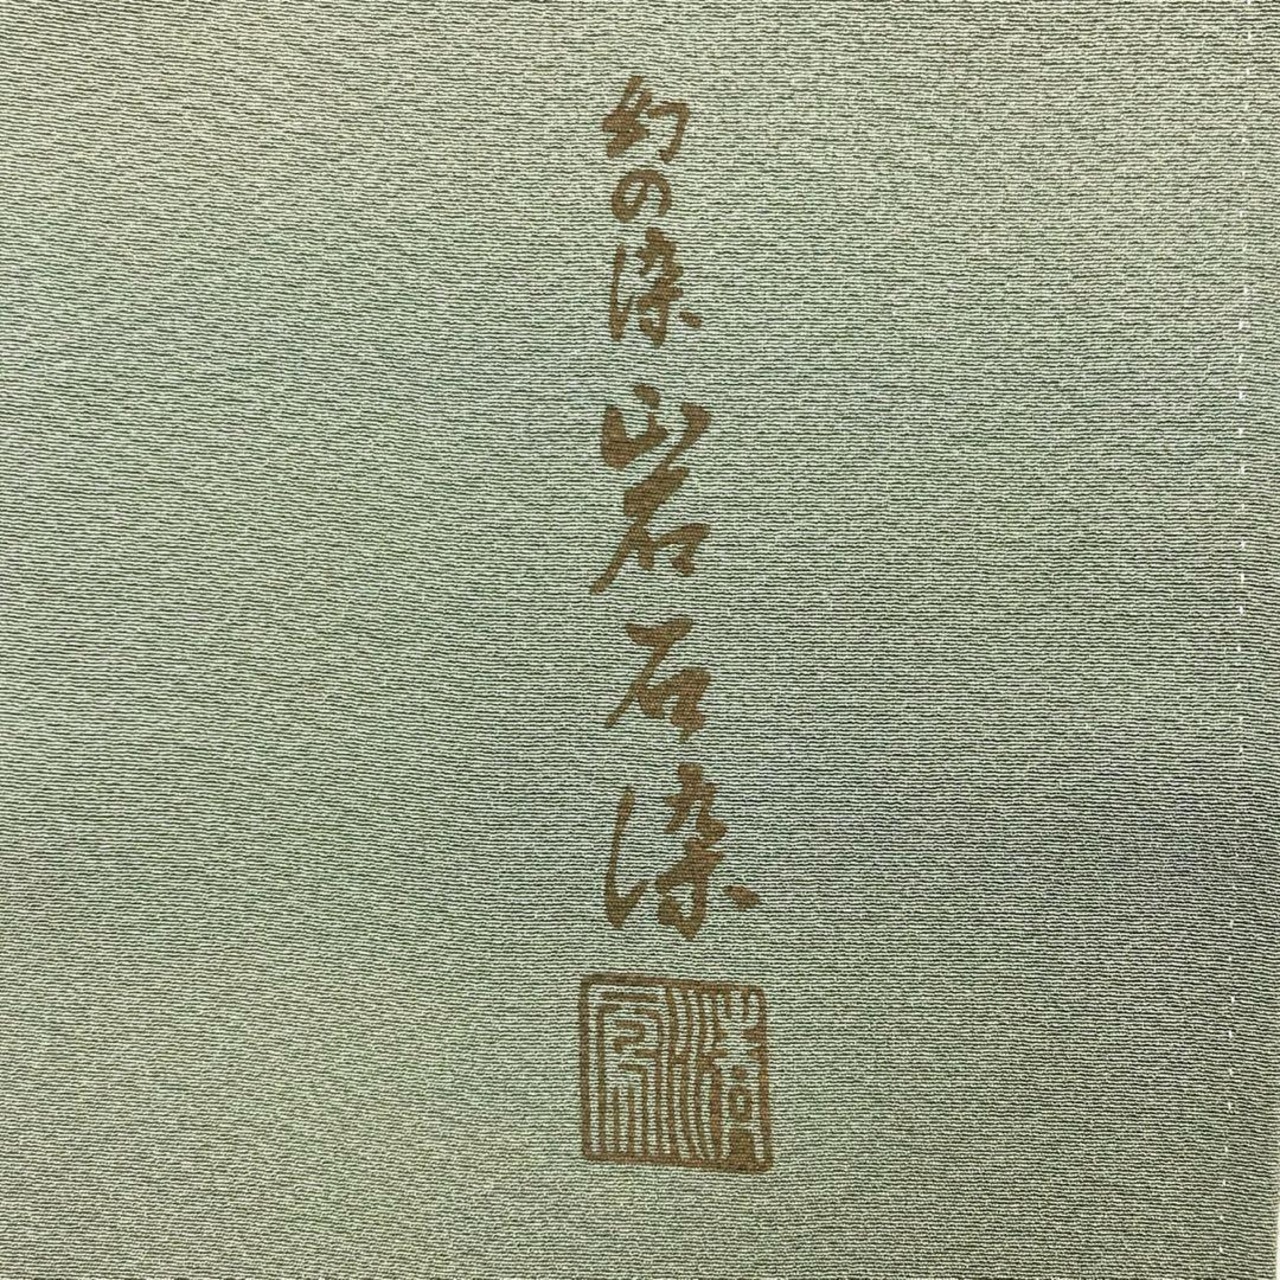 幻の染 岩石染